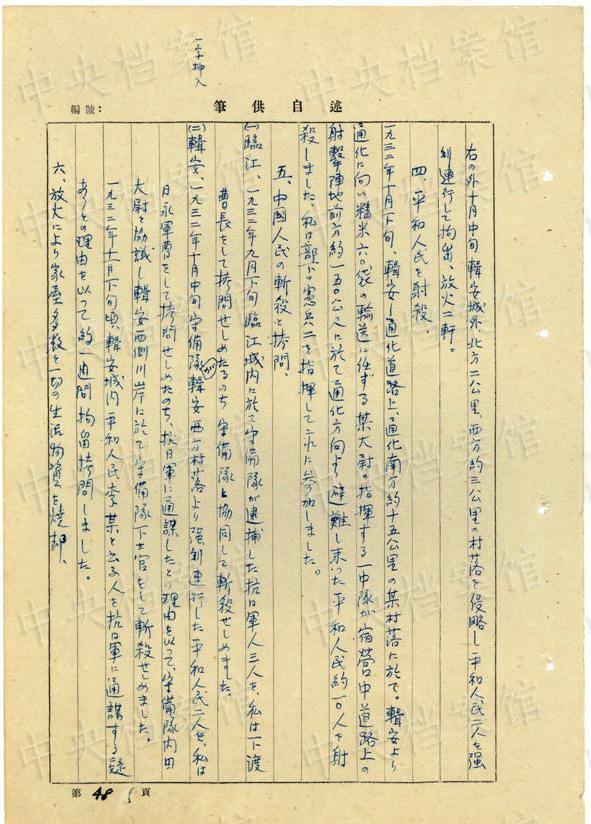 述自供筆
編號:
一字挿入
右の外十月中旬輯安城外、北方二公里、西方約三公里の村落を侵略し平和人民二人を強
制連行して拘留、放火二軒。
四、平和人民を射殺、
一九三二年十月下旬、輯安―通化道路上、通化南方約十五公里の某村落に於て。輯安より
通化に向い精米六〇袋の輸送に任ずる某大尉の指揮する一中隊が宿営中道路上の
射撃陣地前方約一五〇公尺に於て通化方向より避難し来った平和人民約一〇人を射
殺しました、私は部下の憲兵二を指揮して之れに参加しました。
五、中國人民の斬殺と拷問、
(一)臨江、一九三二年九月下旬臨江城内に於て守備隊が逮捕した抗日軍人三人を、私は下渡
曹長をして拷問せしめたるのち守備隊と協同して斬殺せしめました。
(二)輯安、一九三二年十月中旬守備隊が輯安西方村落より强制連行した平和人民二人を、私は
日永軍曹をして拷問せしめたのち、抗日軍に通謀したとの理由を以って、守備隊内田
大尉と協議し輯安西側川岸に於て守備隊下士官をして斬殺せしめました。
一九三二年十一月下旬頃、輯安城内平和人民李某と云ふ人を抗日軍に通謀する疑
ありとの理由を以って約一週間拘留拷問しました。
六、放火により家屋多数と一切の生活物資を焼却、
第 48 頁
中央档案馆